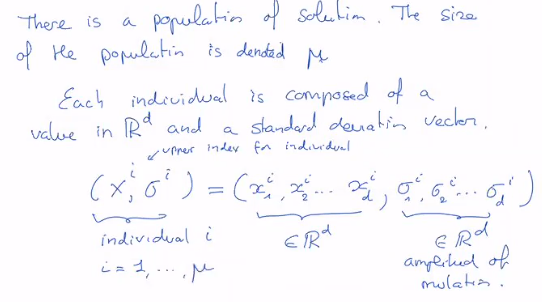 There is a population of solution. The size
of the populatin is denoted μ
Each individual is composed of a
value in ℝᵈ and a standard deviation vector.
↙ upper index for individual
(xⁱ, σⁱ) = (x₁ⁱ, x₂ⁱ ... x_dⁱ, σ₁ⁱ, σ₂ⁱ ... σ_dⁱ)
individual i ∈ ℝᵈ ∈ ℝᵈ
i = 1, ..., μ amplitud of
mutation.